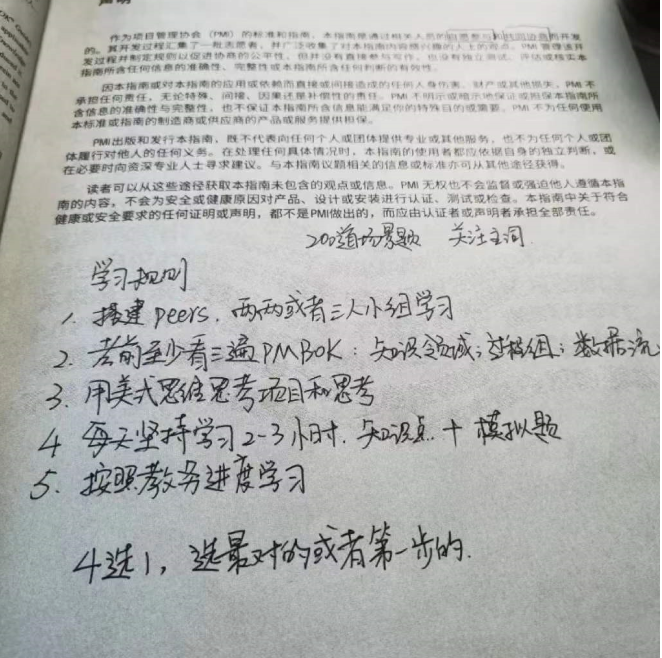 声明
作为项目管理协会（PMI）的标准和指南，本指南是通过相关人员的自愿参与和共同协商而开发
的。其开发过程汇集了一批志愿者，并广泛收集了对本指南内容感兴趣的人士的观点。PMI管理该开
发过程并制定规则以促进协商的公平性，但并没有直接参与写作，也没有独立测试、评估或核实本
指南所含任何信息的准确性、完整性或本指南所含任何判断的有效性。
因本指南或对本指南的应用或依赖而直接或间接造成的任何人身伤害、财产或其他损失，PMI不
承担任何责任，无论特殊、间接、因果还是补偿性的责任。PMI不明示或暗示地保证或担保本指南所
含信息的准确性与完整性，也不保证本指南所含信息能满足你的特殊目的或需要。PMI不为任何使用
本标准或指南的制造商或供应商的产品或服务提供担保。
PMI出版和发行本指南，既不代表向任何个人或团体提供专业或其他服务，也不为任何个人或团
体履行对他人的任何义务。在处理任何具体情况时，本指南的使用者都应依据自身的独立判断，或
在必要时向资深专业人士寻求建议。与本指南议题相关的信息或标准亦可从其他途径获得。
读者可以从这些途径获取本指南未包含的观点或信息。PMI无权也不会监督或强迫他人遵循本指
南的内容，不会为安全或健康原因对产品、设计或安装进行认证、测试或检查。本指南中关于符合
健康或安全要求的任何证明或声明，都不是PMI做出的，而应由认证者或声明者承担全部责任。
200道场景题 关注主词.
学习规则
1. 搭建peers，两两或者三人小组学习
2. 考前至少看三遍PMBOK：知识领域；过程组；数据流
3. 用美式思维思考项目和思考
4 每天坚持学习2-3小时. 知识点 + 模拟题
5. 按照教务进度学习
4选1，选最对的或者第一步的.